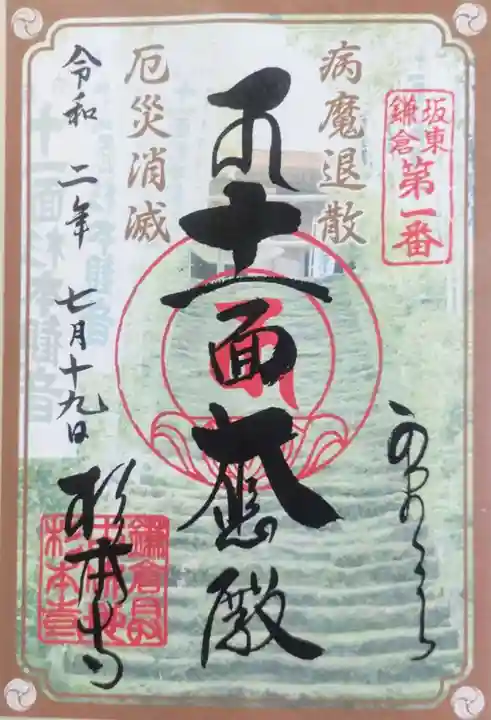 坂東
鎌倉
第一番
病魔退散
十一面大悲殿
厄災消滅
令和二年七月十九日
杉本寺